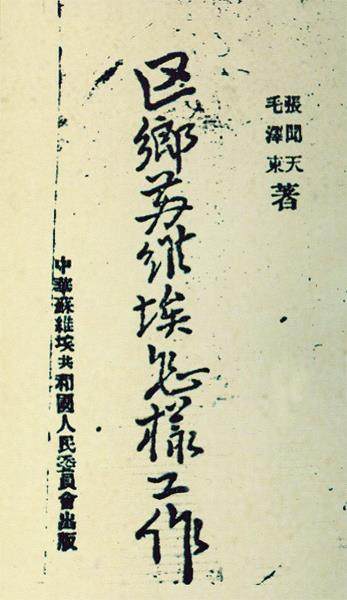 張聞天
毛澤東
著
区鄉苏維埃怎樣工作
中華蘇維埃共和國人民委員會出版